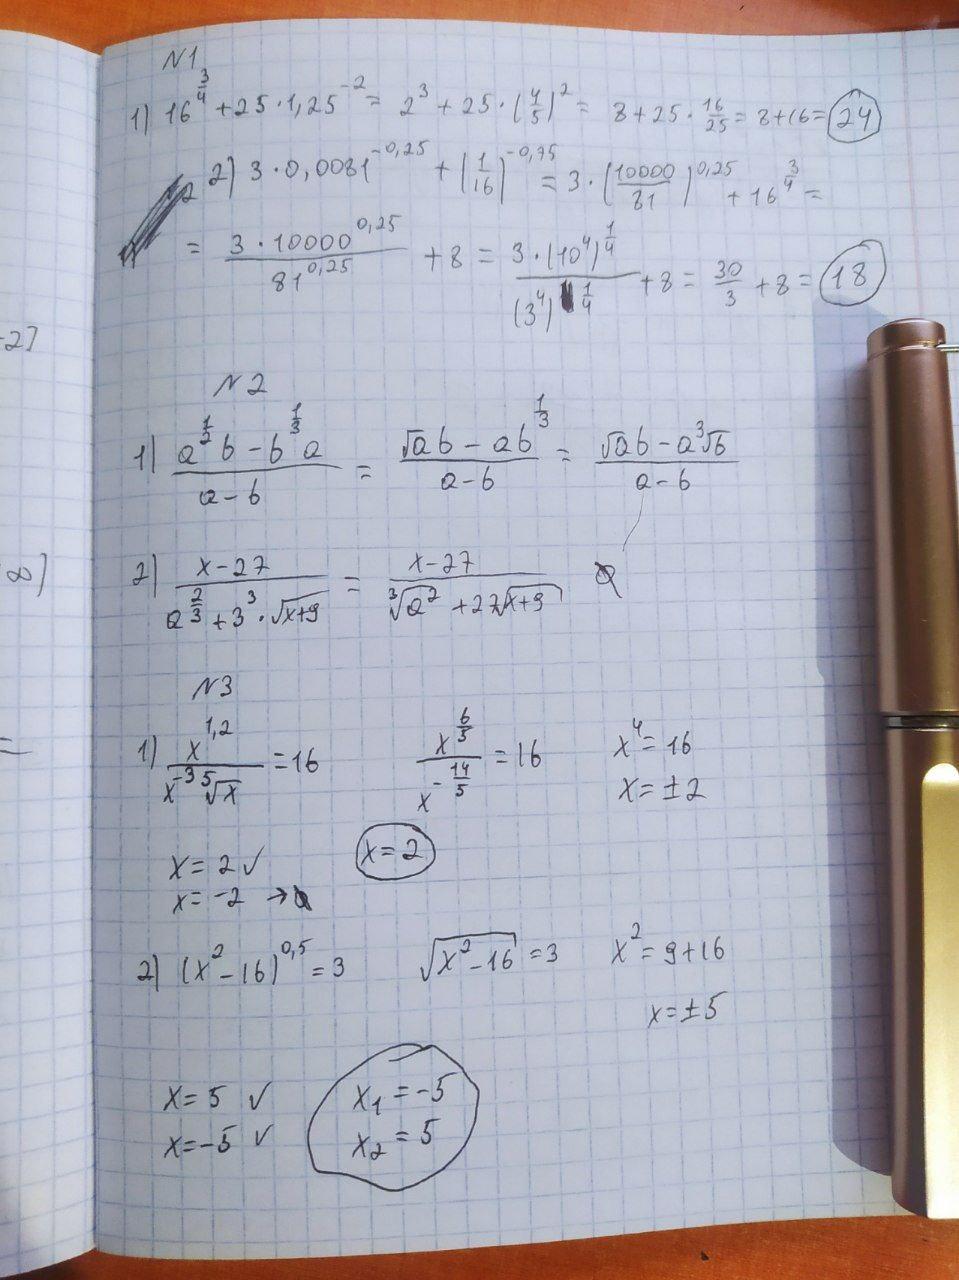 N1
1) 16^(3/4) + 25 · 1,25^(-2) = 2^3 + 25 · (4/5)^2 = 8 + 25 · 16/25 = 8 + 16 = 24
2) 3 · 0,0081^(-0,25) + (1/16)^(-0,75) = 3 · (10000/81)^(0,25) + 16^(3/4) =
= (3 · 10000^(0,25))/(81^(0,25)) + 8 = (3 · (10^4)^(1/4))/((3^4)^(1/4)) + 8 = 30/3 + 8 = 18
-2]
N2
1) (a^(1/2) b - b^(1/3) a)/(a - b) = (√a b - a b^(1/3))/(a - b) = (√a b - a ∛b)/(a - b)
2) (x - 27)/(a^(2/3) + 3^3 · √(x+9)) = (x - 27)/(∛(a^2) + 27√(x+9))
8]
N3
1) x^(1,2)/(x^(-3) ⁵√x) = 16 x^(6/5)/x^(-14/5) = 16 x^4 = 16
x = ±2
=
x = 2 ✓ x = 2
x = -2 →
2) (x^2 - 16)^(0,5) = 3 √(x^2 - 16) = 3 x^2 = 9 + 16
x = ±5
x = 5 ✓ x₁ = -5
x = -5 ✓ x₂ = 5